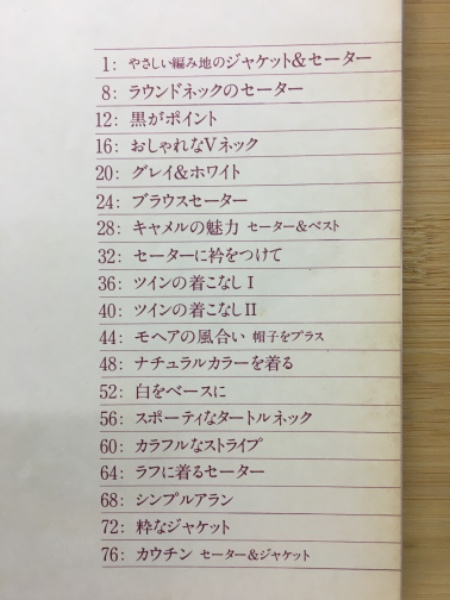 1: やさしい編み地のジャケット&セーター
8: ラウンドネックのセーター
12: 黒がポイント
16: おしゃれなVネック
20: グレイ&ホワイト
24: ブラウスセーター
28: キャメルの魅力 セーター&ベスト
32: セーターに衿をつけて
36: ツインの着こなしⅠ
40: ツインの着こなしⅡ
44: モヘアの風合い 帽子をプラス
48: ナチュラルカラーを着る
52: 白をベースに
56: スポーティなタートルネック
60: カラフルなストライプ
64: ラフに着るセーター
68: シンプルアラン
72: 粋なジャケット
76: カウチン セーター&ジャケット